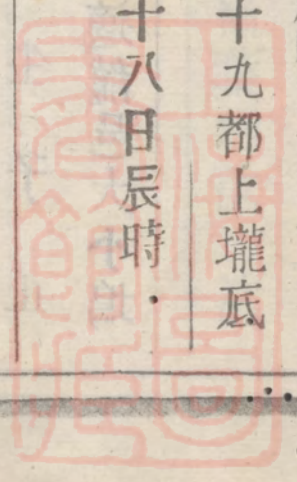 十九都上壠底
十八日辰時